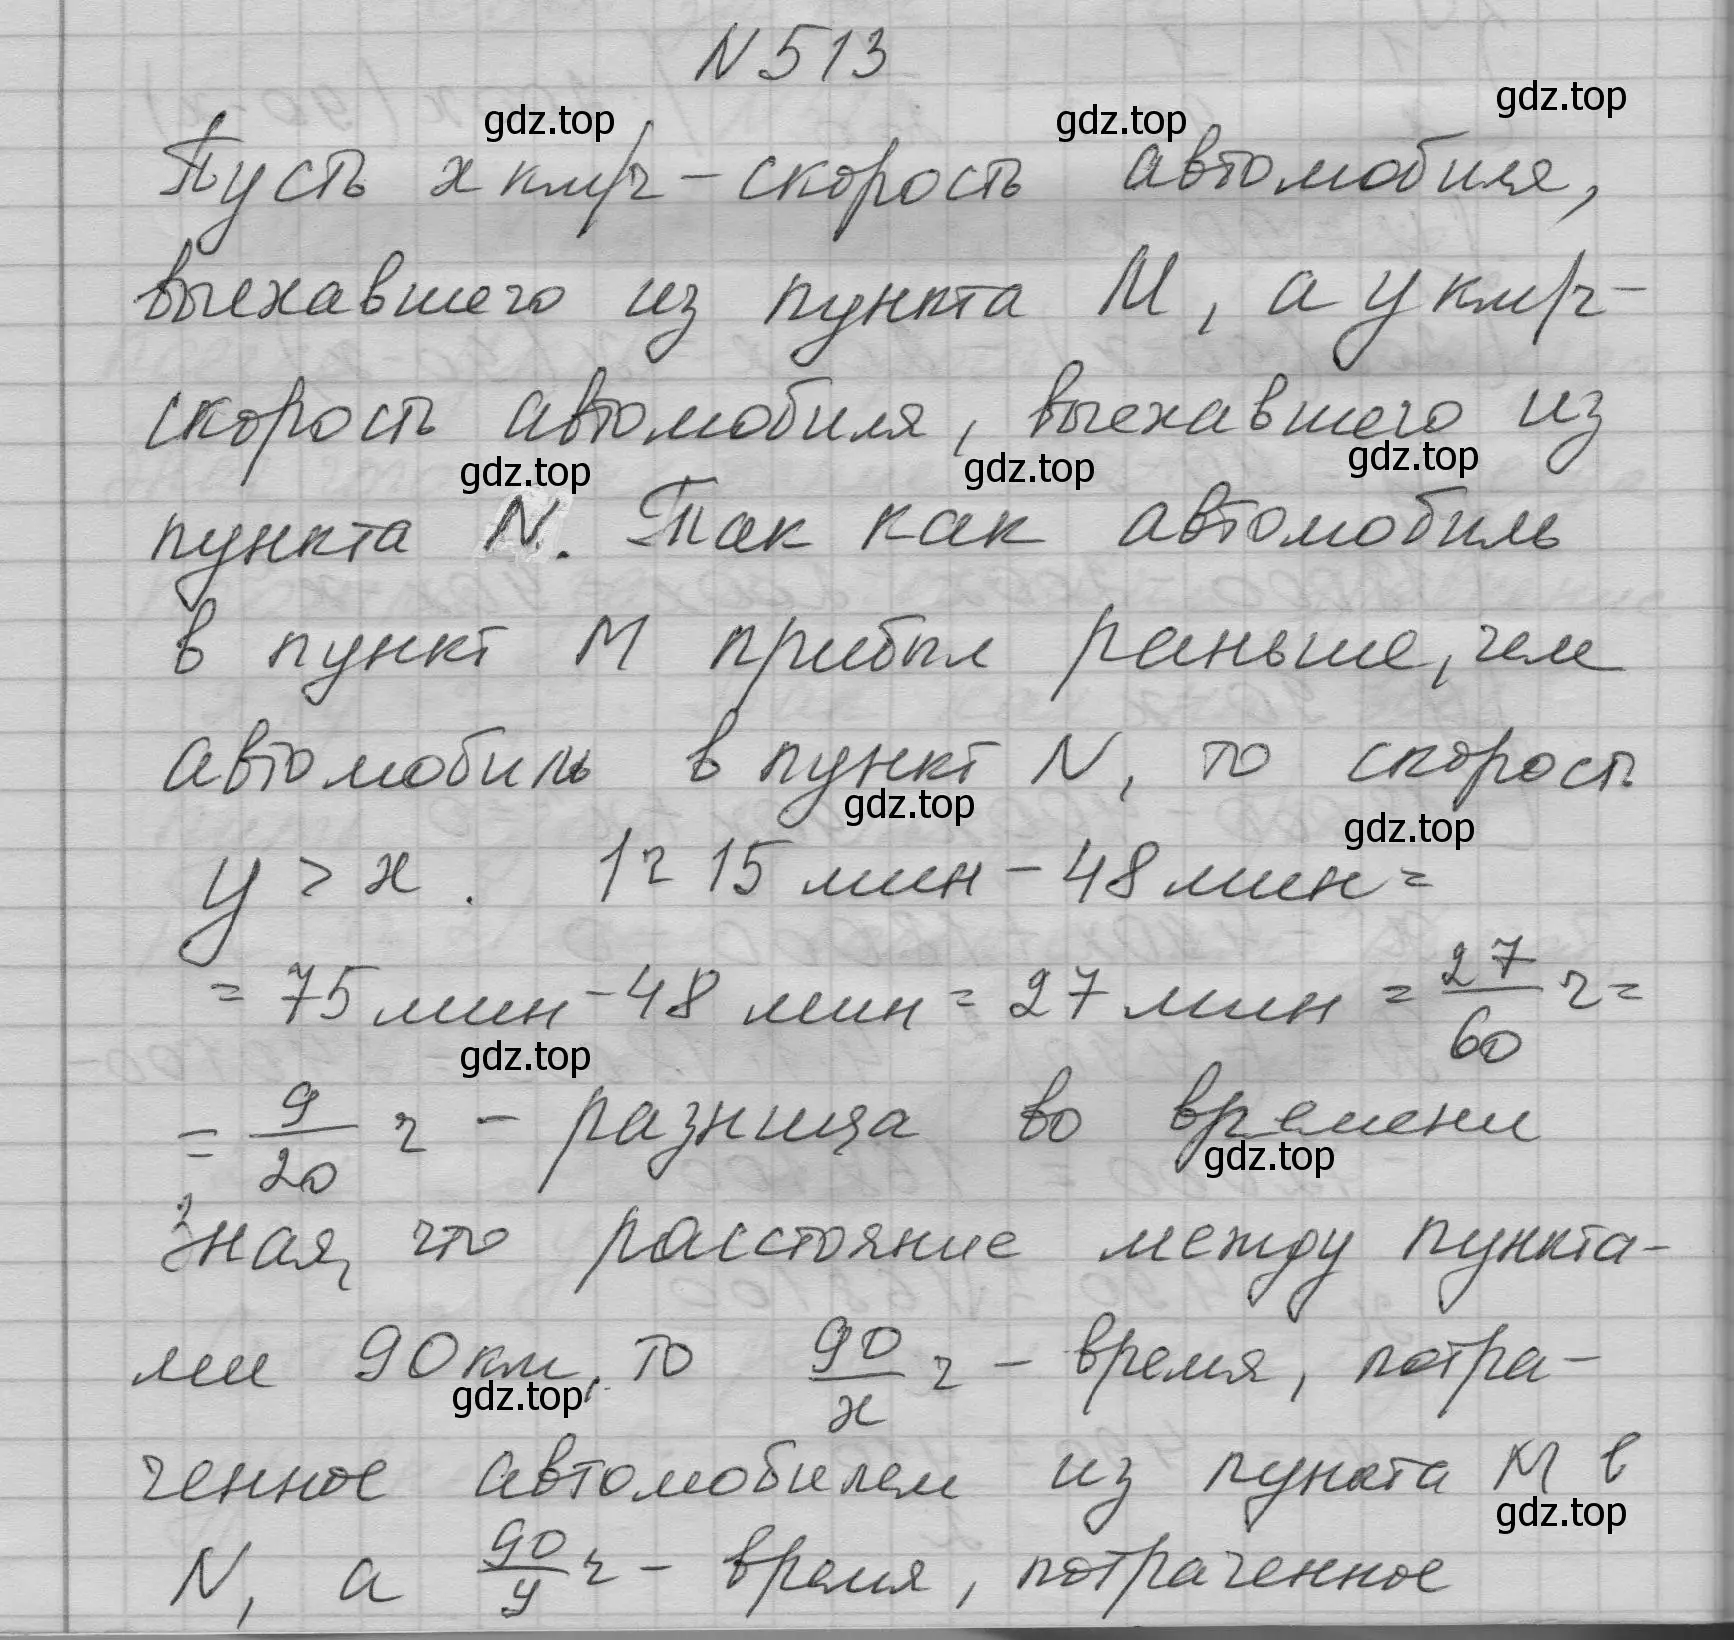 N 513
gdz.top gdz.top gdz.top
Пусть x км/ч - скорость автомобиля,
выехавшего из пункта M, а y км/ч -
скорость автомобиля, выехавшего из
gdz.top gdz.top gdz.top
пункта N. Так как автомобиль
в пункт M прибыл раньше, чем
автомобиль в пункт N, то скорость
gdz.top gdz.top
y > x. 1 ч 15 мин - 48 мин =
= 75 мин - 48 мин = 27 мин = 27/60 ч =
gdz.top
= 9/20 ч - разница во времени
gdz.top
Зная, что расстояние между пункта-
ми 90 км, то 90/x ч - время, потра-
gdz.top
ченное автомобилем из пункта M в
gdz.top
N, а 90/y ч - время, потраченное